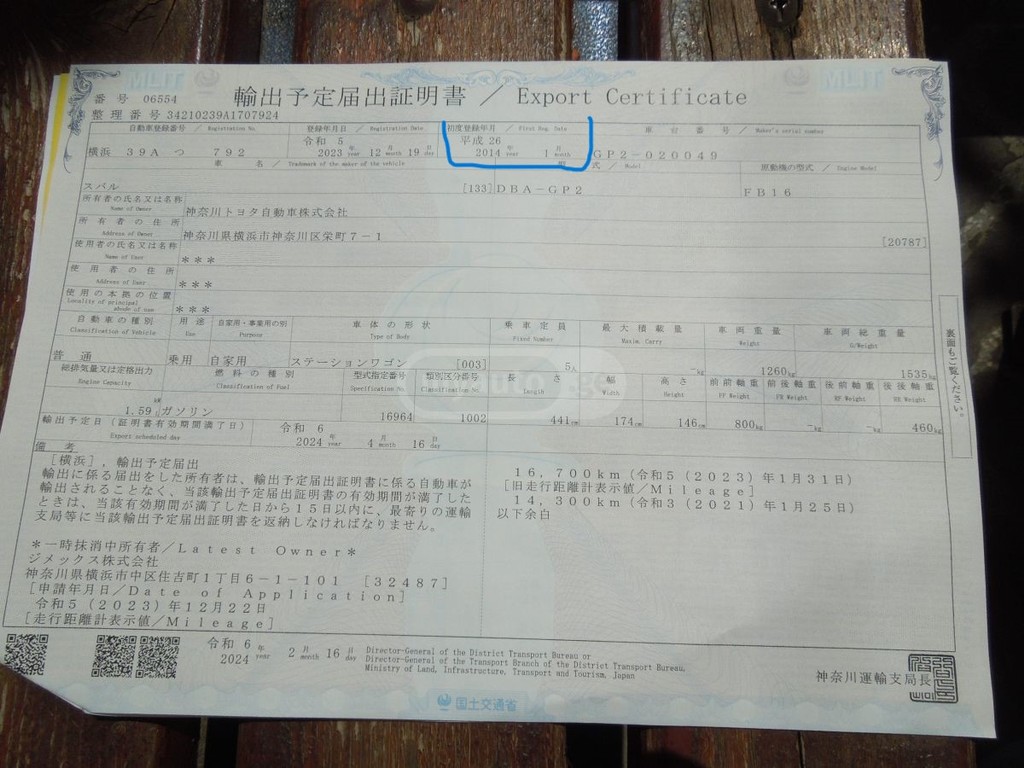 MLIT
MLIT
番 号 06554
輸出予定届出証明書 / Export Certificate
整理番号 34210239A1707924
自動車登録番号 / Registration No.
登録年月日 / Registration Date
初度登録年月 / First Reg. Date
車 台 番 号 / Maker's serial number
横浜 39A つ 792
令和 5
2023 年 year 12 月 month 19 日 day
平成 26
2014 年 year 1 月 month
GP2-020049
車 名 / Trademark of the maker of the vehicle
型 式 / Model
原動機の型式 / Engine Model
スバル
[133] DBA-GP2
FB16
所有者の氏名又は名称 Name of Owner
神奈川トヨタ自動車株式会社
所有者の住所 Address of Owner
神奈川県横浜市神奈川区栄町7-1
[20787]
使用者の氏名又は名称 Name of User
***
使用者の住所 Address of User
***
使用の本拠の位置 Locality of principal abode of use
***
自動車の種別 Classification of Vehicle
用途 Use
自家用・事業用の別 Purpose
車体の形状 Type of Body
乗車定員 Fixed Number
最大積載量 Maxim. Carry
車両重量 Weight
車両総重量 G/Weight
普通
乗用
自家用
ステーションワゴン [003]
5人
-kg
1260kg
1535kg
総排気量又は定格出力 Engine Capacity
燃料の種別 Classification of Fuel
型式指定番号 Specification No.
類別区分番号 Classification No.
長さ Length
幅 Width
高さ Height
前前軸重 FF Weight
前後軸重 FR Weight
後前軸重 RF Weight
後後軸重 RR Weight
1.59 kW L
ガソリン
16964
1002
441cm
174cm
146cm
800kg
-kg
-kg
460kg
輸出予定日(証明書有効期間満了日) Export scheduled day
令和 6
2024 年 year 4 月 month 16 日 day
備 考
[横浜],輸出予定届出
輸出に係る届出をした所有者は、輸出予定届出証明書に係る自動車が
輸出されることなく、当該輸出予定届出証明書の有効期間が満了した
ときは、当該有効期間が満了した日から15日以内に、最寄りの運輸
支局等に当該輸出予定届出証明書を返納しなければなりません。
*一時抹消中所有者/Latest Owner*
ジメックス株式会社
神奈川県横浜市中区住吉町1丁目6-1-101 [32487]
[申請年月日/Date of Application]
令和5(2023)年12月22日
[走行距離計表示値/Mileage]
16,700km(令和5(2023)年1月31日)
[旧走行距離計表示値/Mileage]
14,300km(令和3(2021)年1月25日)
以下余白
裏面もご覧ください。
令和 6
2024 年 year 2 月 month 16 日 day
Director-General of the District Transport Bureau or
Director-General of the Transport Branch of the District Transport Bureau,
Ministry of Land, Infrastructure, Transport and Tourism, Japan
神奈川運輸支局長
国土交通省